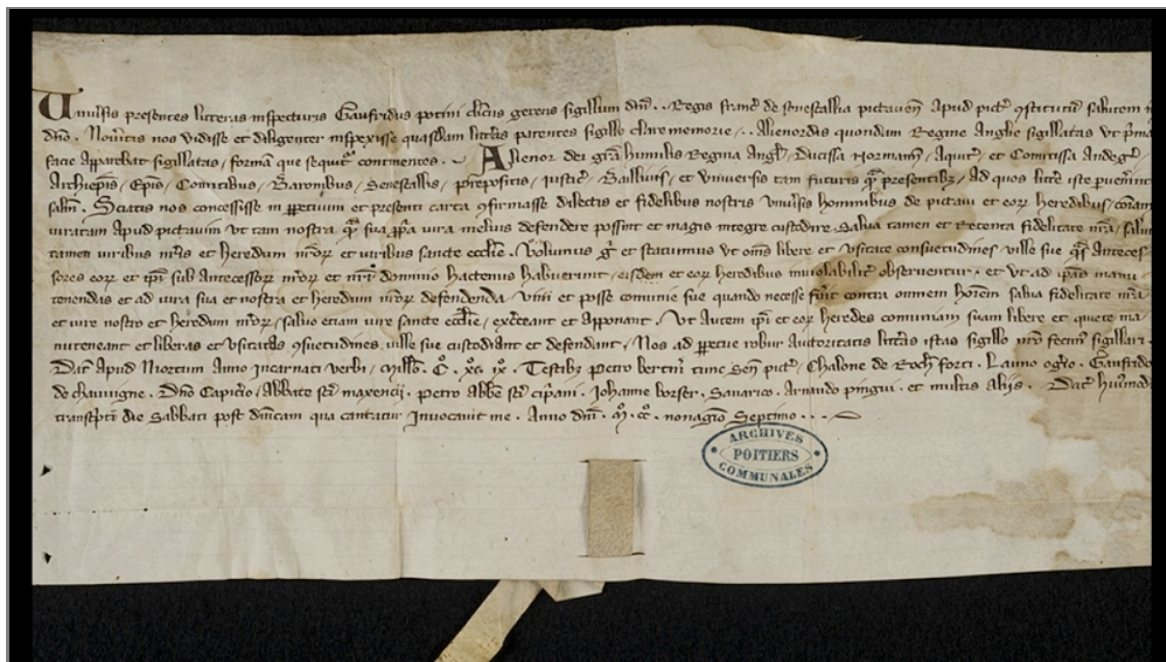 Universis presentes litteras inspecturis Gaufridus potini cl'icus gerens sigillum dni . . Regis franc' de senescallia pictaven' Apud pict' 9stitutum salutem
dno . Noveritis nos vidisse et diligenter inspexisse quasdam litt'as patentes sigillo clare memorie . . Alienordis quondam Regine Anglie sigillatas ut p'ma
facie apparebat sigillatas / formam que sequit' continentes . Alienor dei gra humilis Regina Angl' / Ducissa Normann' / Aquit' / et Comitissa Andeg' /
Archiepis / Epis / Comitibus / Baronibus / Senescallis / prepositis / iustic' / Baillivis / et universis tam futuris q'm presentibz / Ad quos litt'e iste pervenerint
salm . Sciatis nos concessisse in ppetuum et presenti carta 9firmasse dilectis et fidelibus nostris universis hominibus de pictavi et eor heredibus / comam
iuratam Apud pictavim ut tam nostra q'm sua ppa iura melius defendere possint et magis integre custodire . Salva tamen et Retenta fidelitate nra /
tamen iuribus nris et heredum nror et iuribus sancte ecclie . Volumus g' et statuimus ut oms libere et usitate consuetudines / ville sue q's Anteces
sores eor et ipi sub Antecessor nror et nri dominio hactenus habuerunt / eisdem et eor heredibus inviolabilit' observentur . et ut ad ipas manu
tenendas et ad iura sua et nostra et heredum nror defendenda / vim et posse comunie sue quando necesse fu'it contra omnem hoiem salva fidelitate nra
et iure nostro et heredum nror / salvo etiam iure sancte ecclie / exerceant et apponant . Ut Autem ipi et eor heredes comuniam suam libere et quiete ma
nuteneant et liberas et usitatas 9suetudines ville sue custodiant et defendant / Nos ad ppetue robur Autoritatis litt'as istas sigillo nro fecim' sigillari .
Dat' Apud Niortum Anno Incarnati verbi / Mill'o . C° . xc . ix . Testibz petro bertini tunc Sen' pict' / Chalone de Rochforti . Launo ogero . Gaufrido
de chauvigne . Dno Capic'io / Abbate sci maxencii . petro Abbe sci cip'ani . Johanne Borser . Savarico . Arnaudo pingui . et multis Aliis . Dat' hui'mdi
transc'pti die Sabbati post dnicam qua cantatur Invocavit me . Anno dni . M° . cc° . nonag'io Septimo . . .
ARCHIVES
POITIERS
COMMUNALES